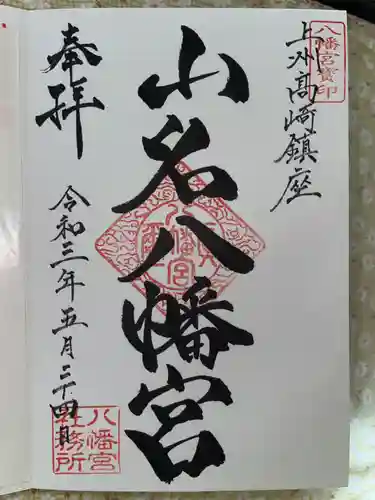 上州高崎鎮座
八幡宮寶印
小名八幡宮
奉拝
令和三年五月二十四日
八幡宮
社務所